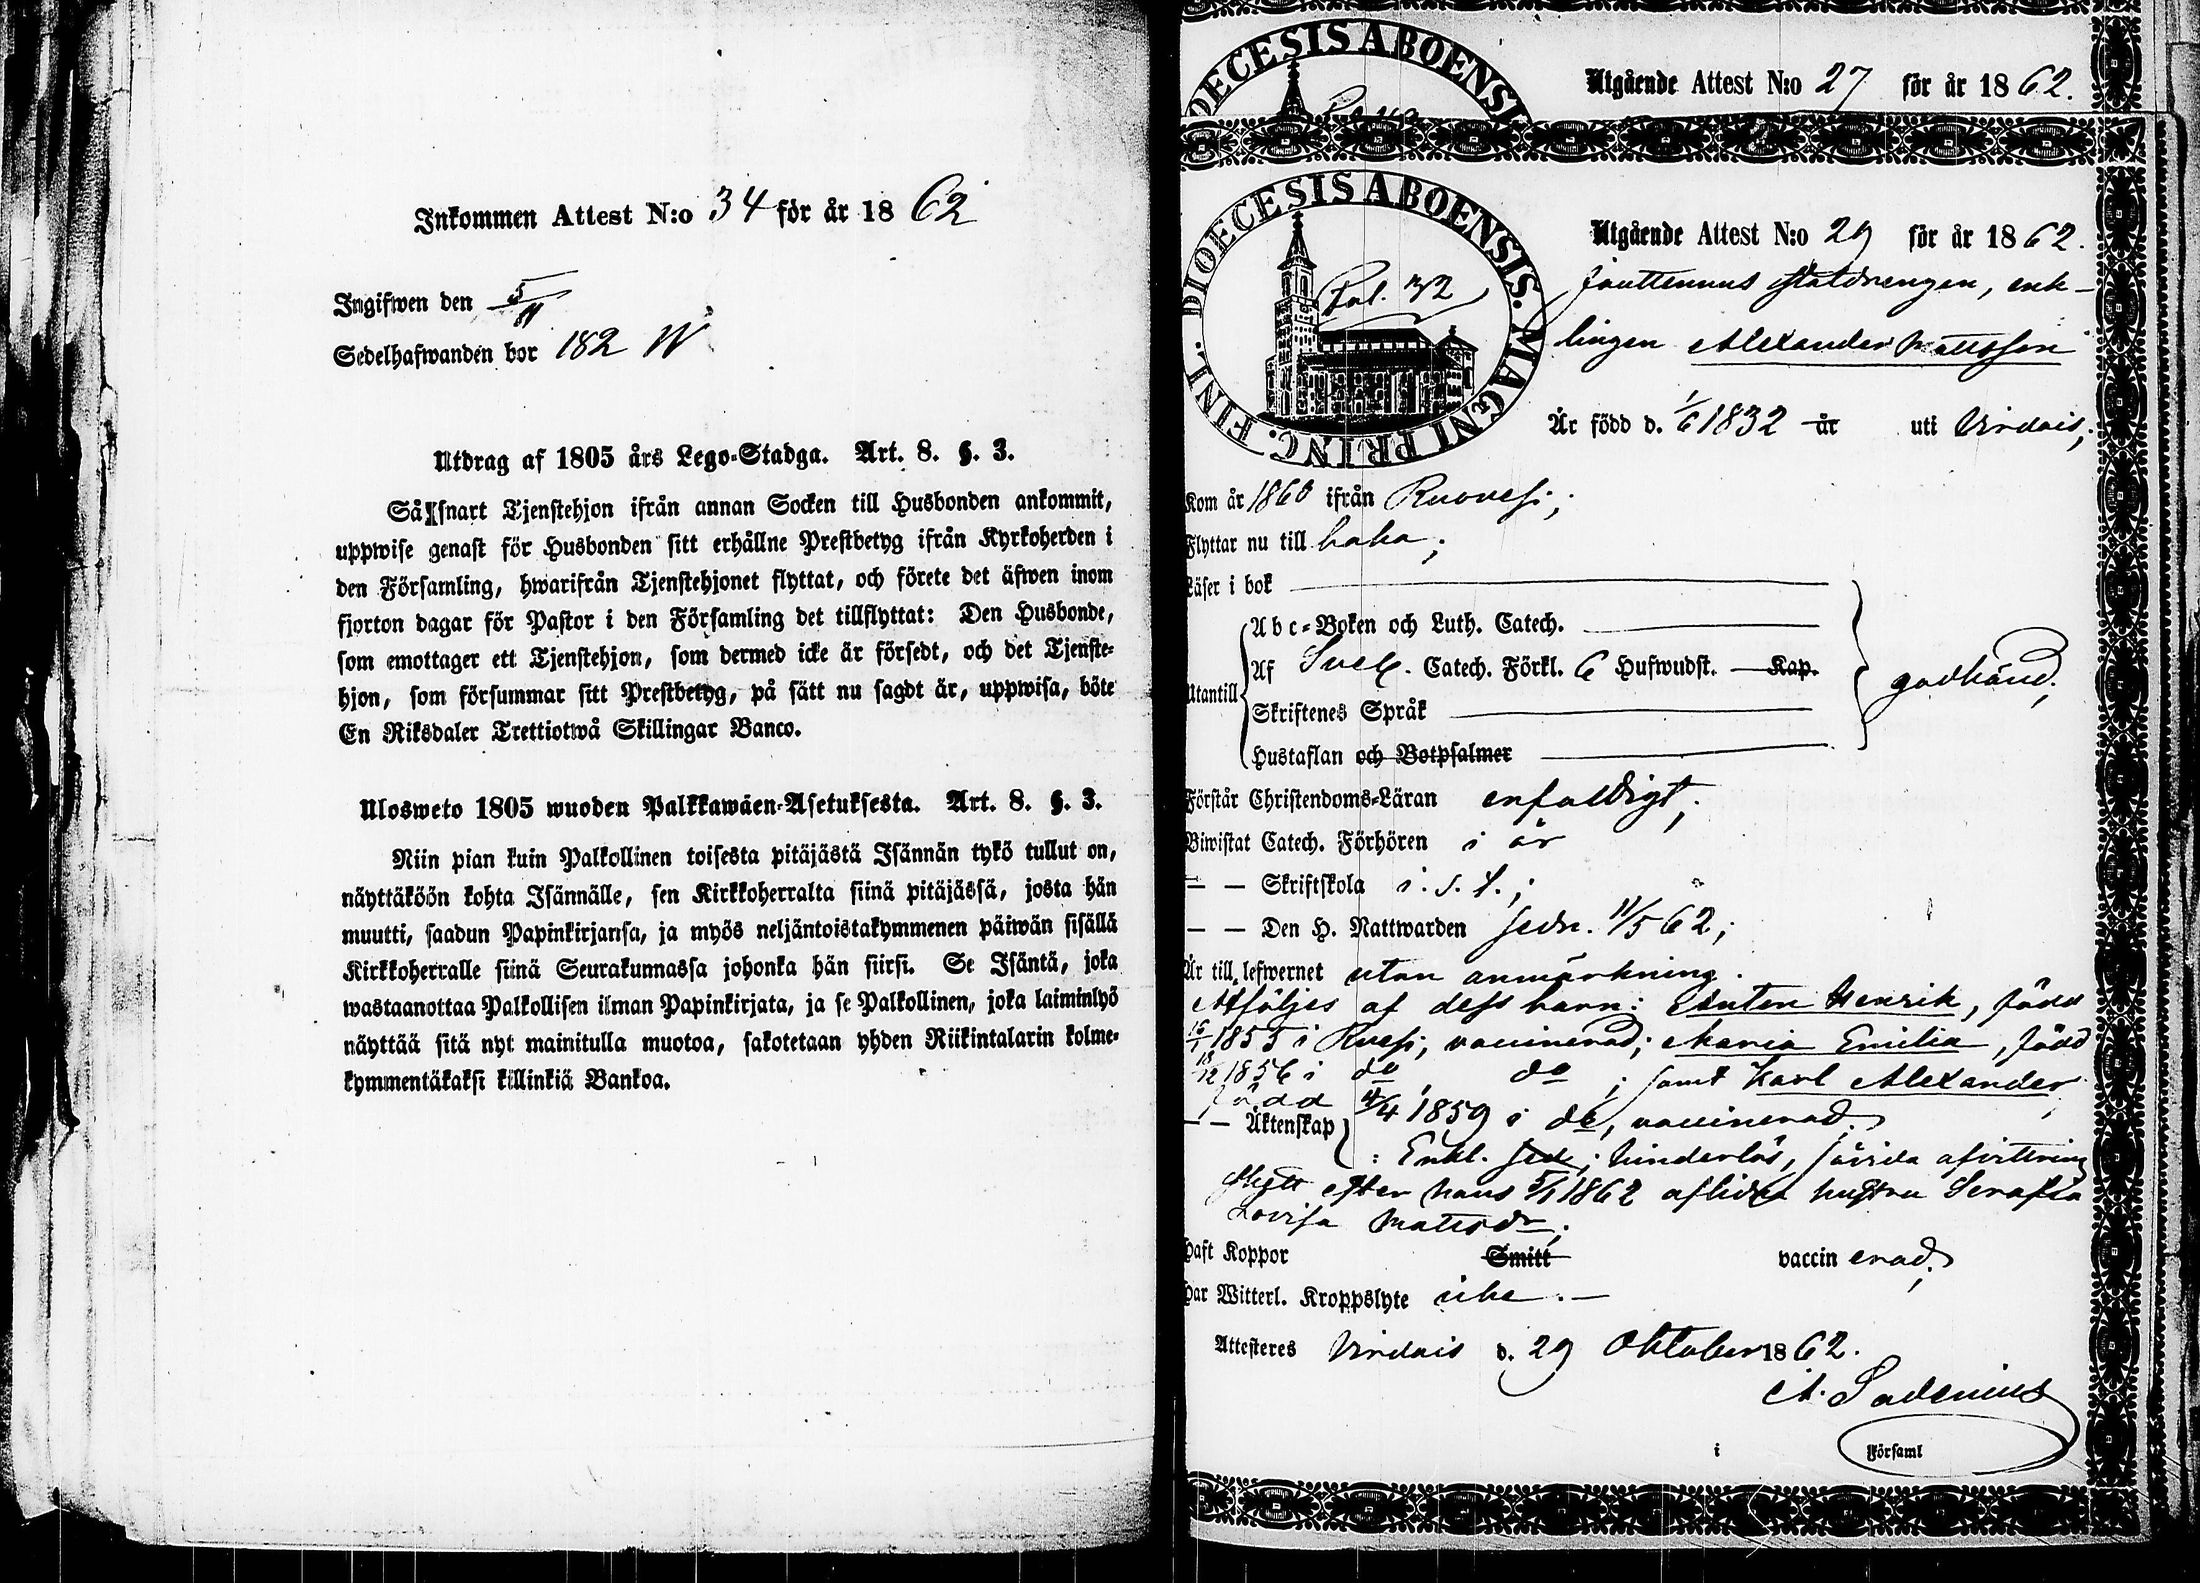 Inkommen Attest N:o 34 för år 1862
Ingifwen den 5/11
Sedelhafwanden bor 182 W
Utdrag af 1805 års Lego-Stadga. Art. 8. §. 3.
Så snart Tjenstehjon ifrån annan Socken till Husbonden ankommit,
uppwise genast för Husbonden sitt erhållne Prestbetyg ifrån Kyrkoherden i
den Församling, hwarifrån Tjenstehjonet flyttat, och förete det äfwen inom
fjorton dagar för Pastor i den Församling det tillflyttat: Den Husbonde,
som emottager ett Tjenstehjon, som dermed icke är försedt, och det Tjenste-
hjon, som försummar sitt Prestbetyg, på sätt nu sagdt är, uppwisa, böte
En Riksdaler Trettiotwå Skillingar Banco.
Ulosweto 1805 wuoden Palkkawäen-Asetuksesta. Art. 8. §. 3.
Niin pian kuin Palkollinen toisesta pitäjästä Isännän tykö tullut on,
näyttäköön kohta Isännälle, sen Kirkkoherralta siinä pitäjässä, josta hän
muutti, saadun Papinkirjansa, ja myös neljäntoistakymmenen päiwän sisällä
Kirkkoherralle siinä Seurakunnassa johonka hän siirsi. Se Isäntä, joka
wastaanottaa Palkollisen ilman Papinkirjata, ja se Palkollinen, joka laiminlyö
näyttää sitä nyt mainitulla muotoa, sakotetaan yhden Riikintalarin kolme-
kymmentäkaksi killinkiä Bankoa.
DIOECESIS ABOENSIS
Utgående Attest N:o 27 för år 1862.
DIOECESIS ABOENSIS. MAGNI PRINC. FINL.
Fol. 32
Utgående Attest N:o 29 för år 1862.
statdrengen, enk-
lingen Alexander Mattsson
Är född d. 1/6 1832 år uti Virdois,
Kom år 1860 ifrån Ruovesi;
Flyttar nu till
Läser i bok
Utantill
Abc-Boken och Luth. Catech.
Af Sveb. Catech. Förkl. 6 Hufwudst. Kap.
Skriftenes Språk
Hustaflan och Botpsalmer
godkänd;
Förstår Christendoms-Läran enfaldigt;
Biwistat Catech. Förhören i år
— — Skriftskola i. s. t.;
— — Den H. Nattwarden sedn. 11/5 62;
Är till lefwernet utan anmärkning.
Åtföljes af dess barn: Anton Henrik, född
16/1 1855 i Ruesi; vaccinerad; Maria Emilia, född
18/12 1856 i do do; samt Karl Alexander,
född 4/4 1859 i do, vaccinerad.
— — Äktenskap: Enkl. hinderlös, såvida afvittring
skett efter hans 5/1 1862 aflidna hustru Serafia
Lovisa Mattsdr;
Haft Koppor Smitt vaccinerad;
Har Witterl. Kroppslyte icke.—
Attesteres Virdois d. 29 Oktober 1862.
A. Sadenius
i Församl